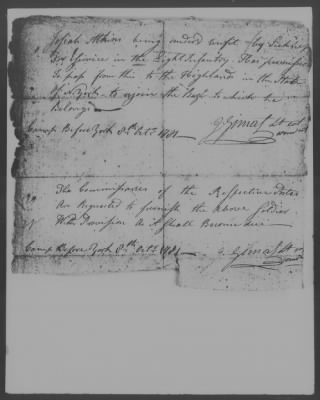 Josiah Atkins being unfit (by Sickness)
for Service in the Light Infantry. Has permission
To pass from this to the Highlands in the State
of N York - to rejoin the Regt to which he
belongs
Camp Before York 8th Octr 1781
G. Gimat Lt Col
The Commissaries of the Respective Posts
Are Requested to furnish the Above Soldier
With Provision As it Shall Become due
Camp Before York 8th Octr 1781
G. Gimat Lt